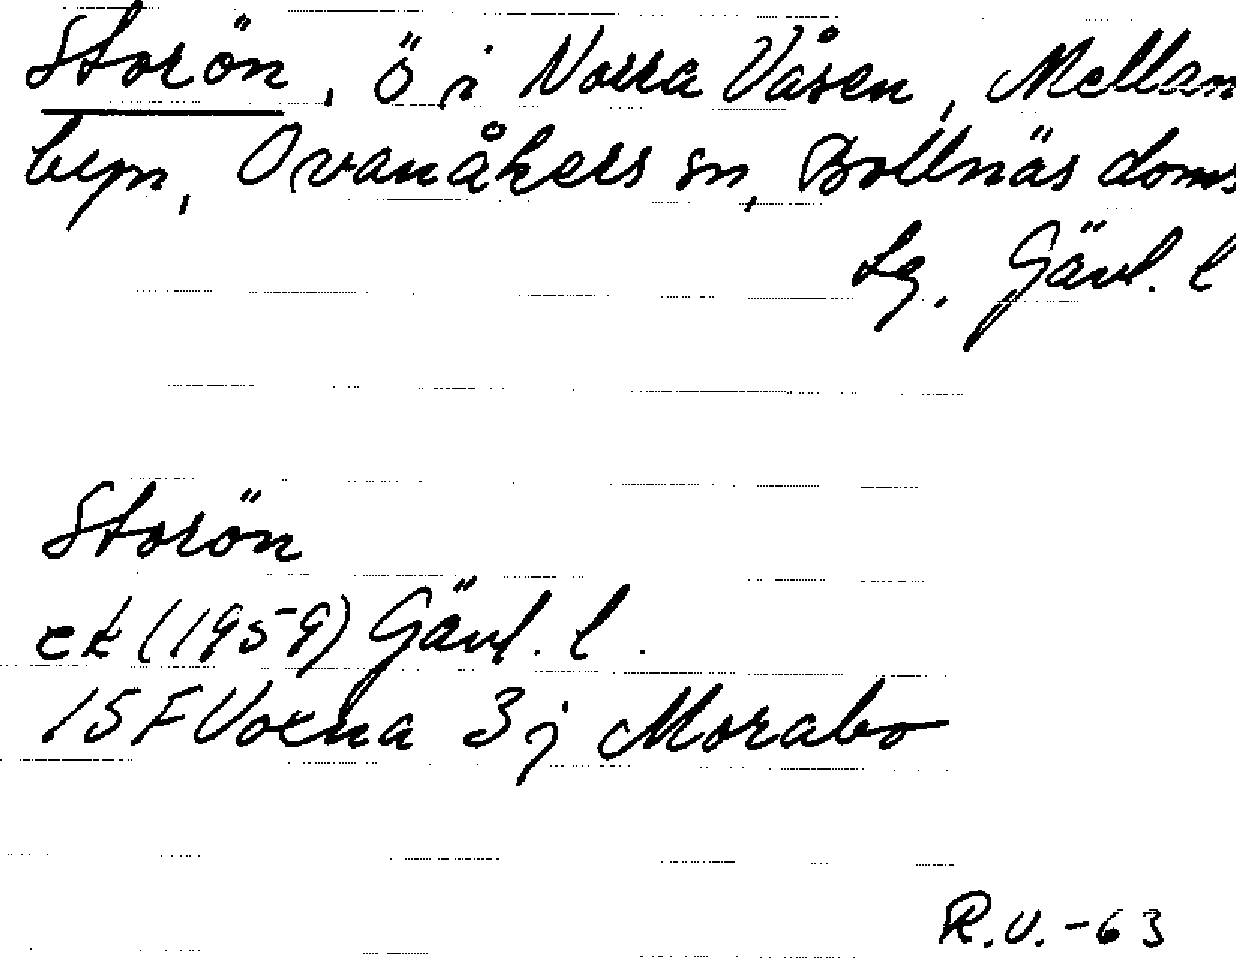 Storön, ö i Norra Våsen, Mellan
byn, Ovanåkers sn, Bollnäs doms
lg. Gävl. l
Storön
ek (1959) Gävl. l.
15F Voxna 3j Morabo
R.V.-63